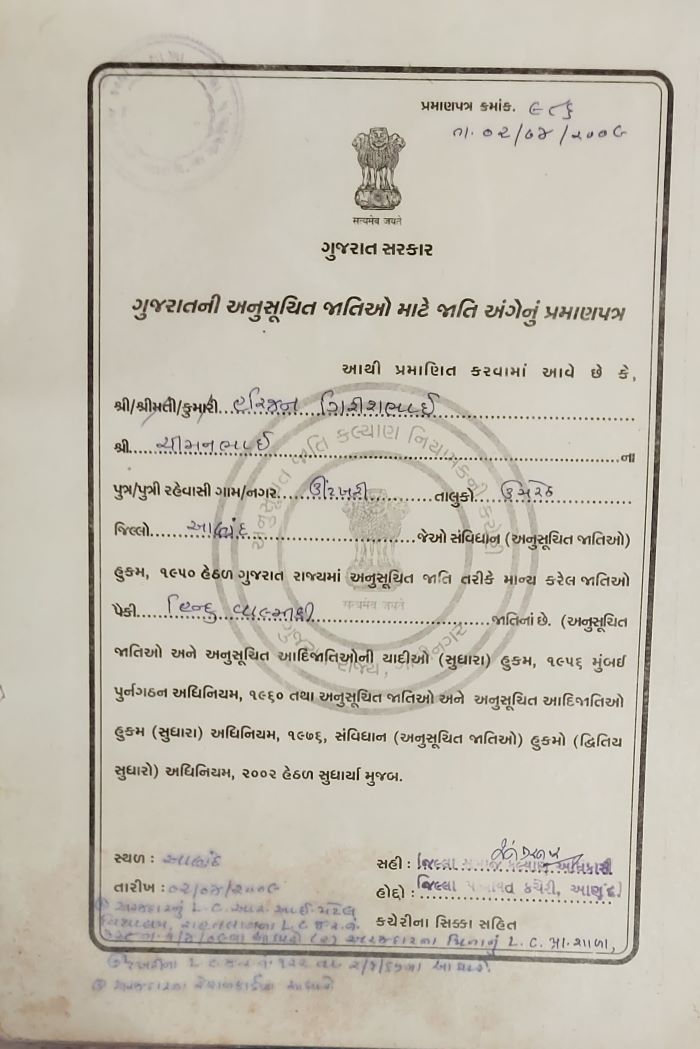 પ્રમાણપત્ર ક્રમાંક. ૯૮૬
તા. ૦૨/૦૪/૨૦૦૯
सत्यमेव जयते
ગુજરાત સરકાર
ગુજરાતની અનુસૂચિત જાતિઓ માટે જાતિ અંગેનું પ્રમાણપત્ર
આથી પ્રમાણિત કરવામાં આવે છે કે,
શ્રી/શ્રીમતી/કુમારી... હરિજન ગિરીશભાઈ
શ્રી.... ચીમનભાઈ ....ના
પુત્ર/પુત્રી રહેવાસી ગામ/નગર.... ઊંટખરી ....તાલુકો... ઉમરેઠ
જિલ્લો..... આણંદ ......જેઓ સંવિધાન (અનુસૂચિત જાતિઓ)
હુકમ, ૧૯૫૦ હેઠળ ગુજરાત રાજ્યમાં અનુસૂચિત જાતિ તરીકે માન્ય કરેલ જાતિઓ
પૈકી.... હિન્દુ વાલ્મીકી ....જાતિનાં છે. (અનુસૂચિત
જાતિઓ અને અનુસૂચિત આદિજાતિઓની યાદીઓ (સુધારા) હુકમ, ૧૯૫૬ મુંબઈ
પુર્નગઠન અધિનિયમ, ૧૯૬૦ તથા અનુસૂચિત જાતિઓ અને અનુસૂચિત આદિજાતિઓ
હુકમ (સુધારા) અધિનિયમ, ૧૯૭૬, સંવિધાન (અનુસૂચિત જાતિઓ) હુકમો (દ્વિતિય
સુધારો) અધિનિયમ, ૨૦૦૨ હેઠળ સુધાર્યા મુજબ.
સ્થળ : આણંદ
સહી : જિલ્લા સમાજ કલ્યાણ અધિકારી
તારીખ : ૦૨/૦૪/૨૦૦૯
હોદ્દો : જિલ્લા પંચાયત કચેરી, આણંદ
કચેરીના સિક્કા સહિત
① અરજદારનું L.C. આર. આઈ. પટેલ
વિદ્યાલય,
(૨) અરજદારના પિતાનું L.C. પ્રા. શાળા,
③ અરજદારના રેશનકાર્ડના આધારે